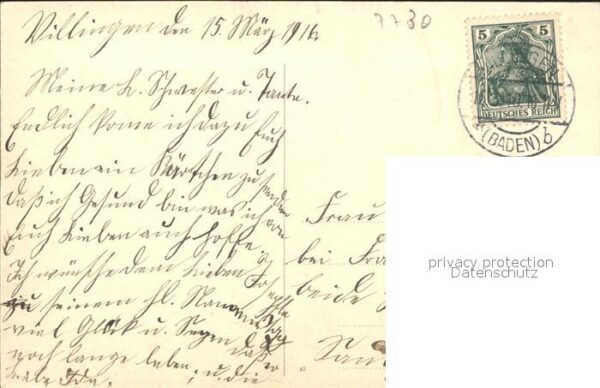 Villingen den 15. März 1916.
7730
5 5
DEUTSCHES REICH
(BADEN) b
Meine l. Schwester u. Tante.
Endlich kome ich dazu Euch
Lieben ein Kärtchen zu senden
daß ich Gesund bin was ich von
Euch Lieben auch hoffe.
Ich wünsche dem lieben
zu seinem hl. Namens
viel Glük u. Segen daß er
noch lange lebe, u. die
liebe Ida.
Frau
bei Fra
beide
privacy protection
Datenschutz